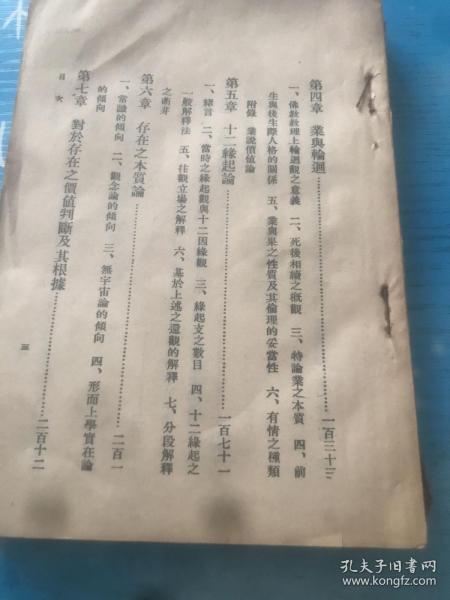 第四章　業與輪迴………一百三十三
一、佛教教理上輪迴觀之意義　二、死後相續之概觀　三、特論業之本質　四、前
生與後生際人格的關係　五、業與果之性質及其倫理的妥當性　六、有情之種類
附錄　業說價値論
第五章　十二緣起論………一百七十一
一、緖言　二、當時之緣起觀與十二因緣觀　三、緣起支之數目　四、十二緣起之
一般解釋法　五、往觀立場之解釋　六、基於上述之還觀的解釋　七、分段解釋
之萌芽
第六章　存在之本質論………二百一
一、常識的傾向　二、觀念論的傾向　三、無宇宙論的傾向　四、形而上學實在論
的傾向
第七章　對於存在之價値判斷及其根據………二百十二
目次
三
孔夫子旧书网
www.kongfz.com